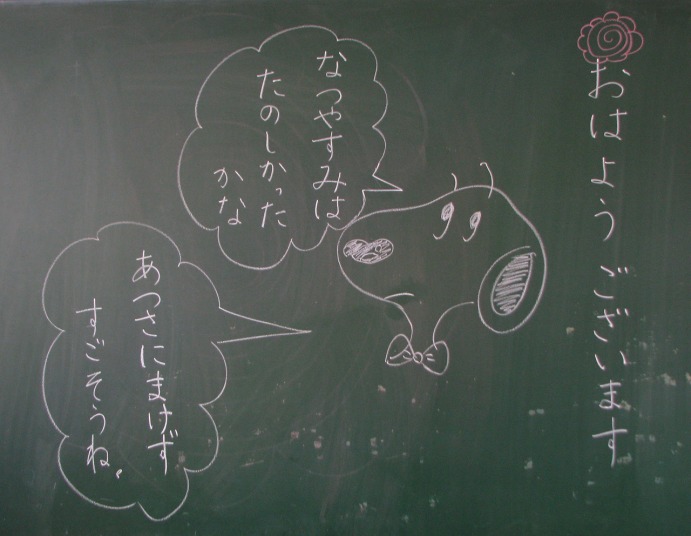 おはようございます
なつやすみは
たのしかった
かな
あつさにまけず
すごそうね。